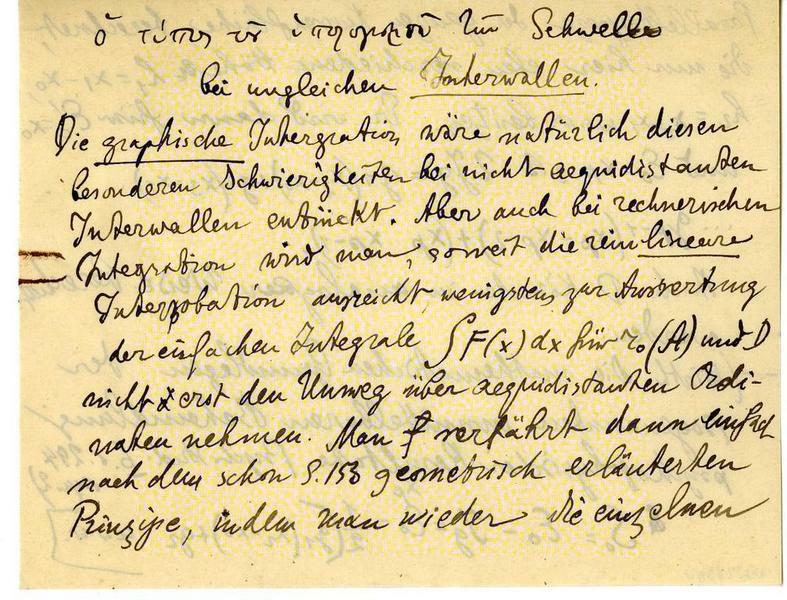 ὁ τύπος τοῦ ὑπολογισμοῦ τῶν Schwelle
bei ungleichen Interwallen.
Die graphische Intergration wäre natürlich diesen
besonderen Schwierigkeiten bei nicht aequidistanten
Interwallen entrückt. Aber auch bei rechnerischen
Integration wird man, soweit die rein lineare
Interpobation ausreicht, wenigstens zur Auswertung
der einfachen Integrale ∫F(x)dx für r₀(A) und D
nicht erst den Umweg über aequidistanten Ordi-
naten nehmen. Man verfährt dann einfach
nach dem schon S. 153 geometrisch erläuterten
Prinzipe, indem man wieder die einzelnen